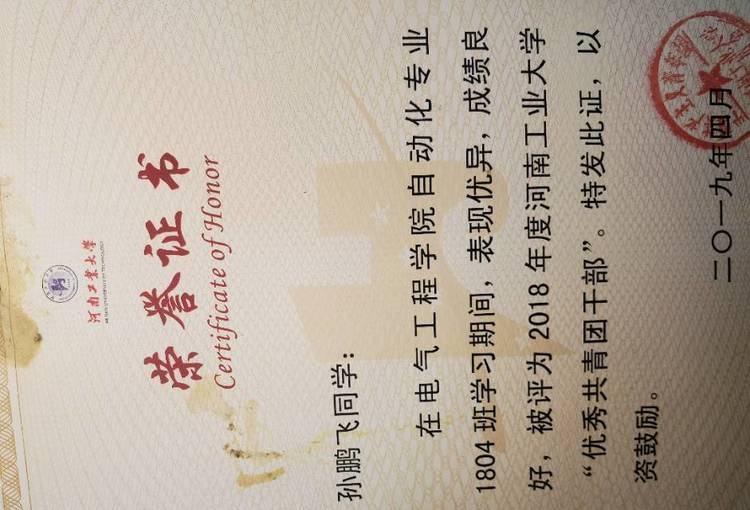 河南工业大学
HENAN UNIVERSITY OF TECHNOLOGY
荣誉证书
Certificate of Honor
孙鹏飞同学：
在电气工程学院自动化专业
1804 班学习期间，表现优异，成绩良
好，被评为 2018 年度河南工业大学
“优秀共青团干部”。特发此证，以
资鼓励。
二〇一九年四月